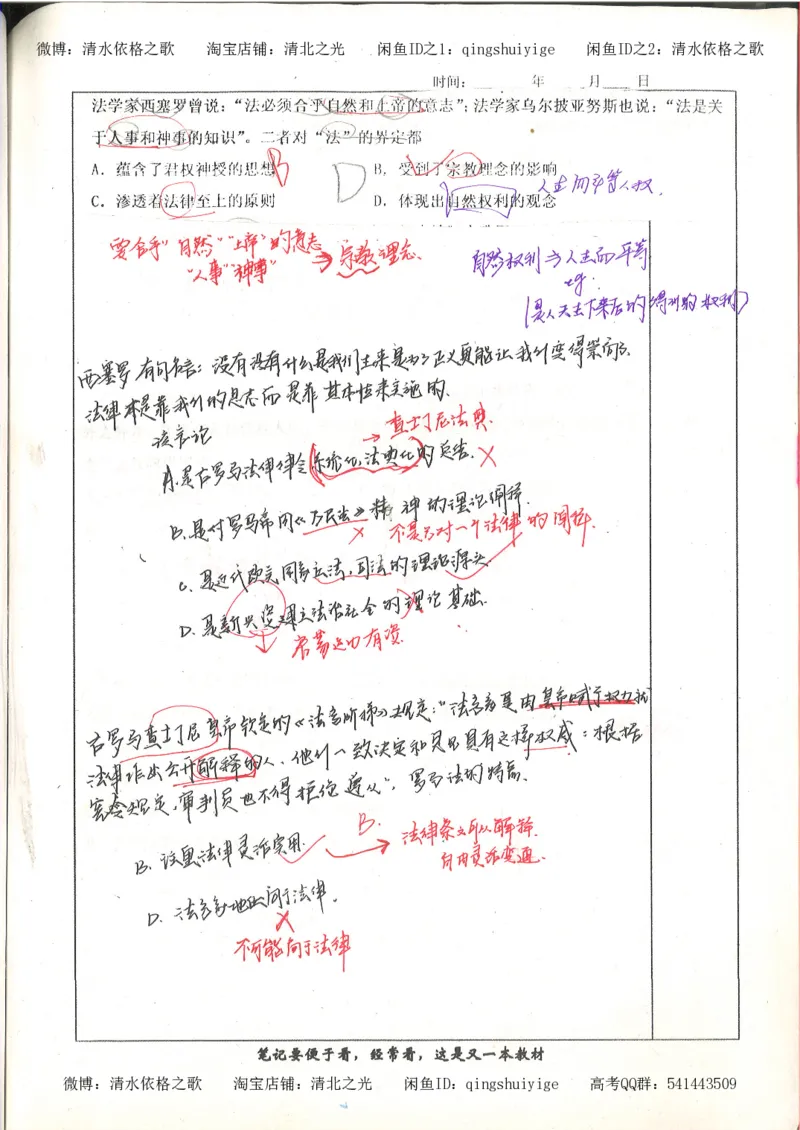 微博：清水依格之歌　　淘宝店铺：清北之光　　闲鱼ID之1：qingshuiyige　　闲鱼ID之2：清水依格之歌
时间：　　年　　月　　日
法学家西塞罗曾说：“法必须合乎自然和上帝的意志”；法学家乌尔披亚努斯也说：“法是关
于人事和神事的知识”。二者对“法”的界定都
A．蕴含了君权神授的思想 B
D B．受到了宗教理念的影响
人生而平等人权.
C．渗透着法律至上的原则
D．体现出自然权利的观念
要合乎“自然”“上帝”的意志
“人事”“神事” → 宗教理念.
自然权利与人生而平等
(是人天生下来后的得到的权利)
西塞罗有句名言：没有什么是我们生来是为了正义更能让我们变得崇高.
法律不是靠我们的意志而是靠其本性来实施的.
该言论
→ 查士丁尼法典.
A.是古罗马法律 系统化,法典化的总结. ×
B.是对罗马帝国《万民法》精神的理论阐释.
× 不是不对一个法律的阐释.
C.是近代欧美国家立法,司法的理论源头.
D.是新兴资 建立法治社会的理论基础.
↓ 有资
古罗马查士丁尼皇帝钦定的《法 阶梯》规定:“法 是由皇帝赋予权力就
法律作出公开解释的人、他们一致决定和 具有 权威:根据
规定,审判员也不得拒绝遵从”,罗马法的特点.
B.
B. 这里法律灵活实用.
→ 法律条文可以解释.
自由灵活变通.
D. 法 地位 于法律.
×
不可能高于法律
笔记要便于看，经常看，这是又一本教材
微博：清水依格之歌　　淘宝店铺：清北之光　　闲鱼ID：qingshuiyige　　高考QQ群：541443509